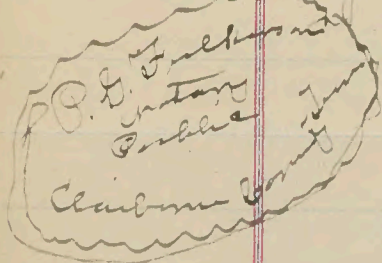 P. G. Fulkerson
Notary
Public
Claiborne County Tenn